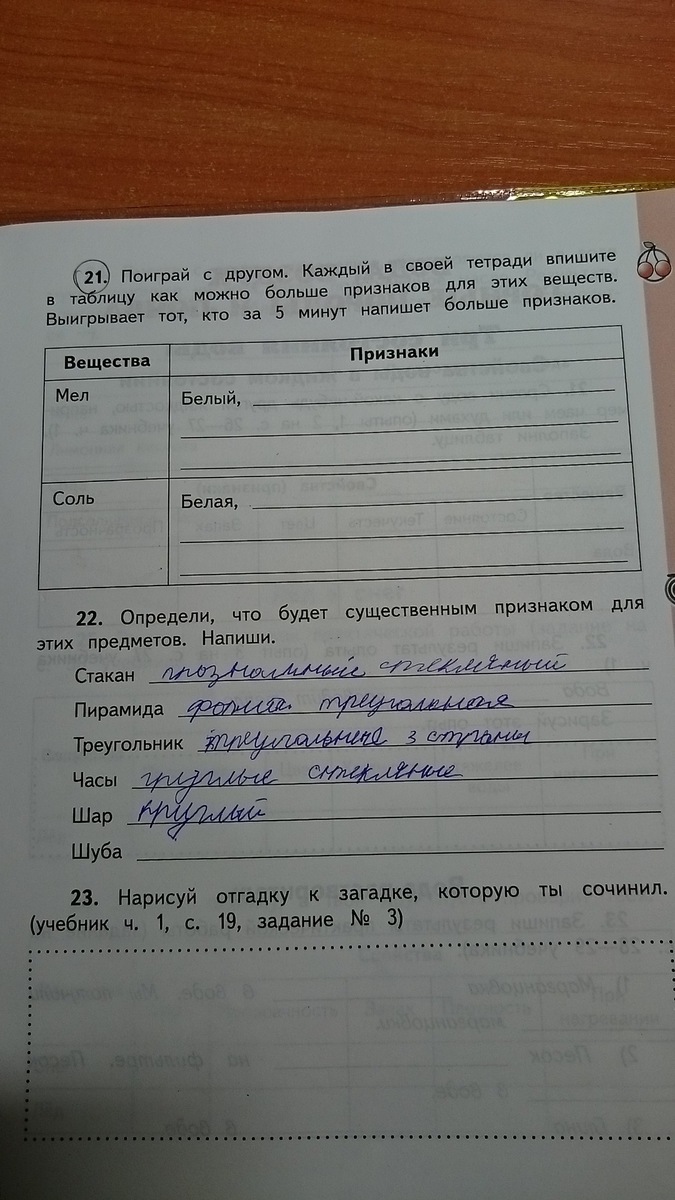 21. Поиграй с другом. Каждый в своей тетради впишите
в таблицу как можно больше признаков для этих веществ.
Выигрывает тот, кто за 5 минут напишет больше признаков.
Вещества Признаки
Мел Белый,
Соль Белая,
22. Определи, что будет существенным признаком для
этих предметов. Напиши.
Стакан стеклянный
Пирамида треугольная
Треугольник 3 страны
Часы
Шар круглый
Шуба
23. Нарисуй отгадку к загадке, которую ты сочинил.
(учебник ч. 1, с. 19, задание № 3)